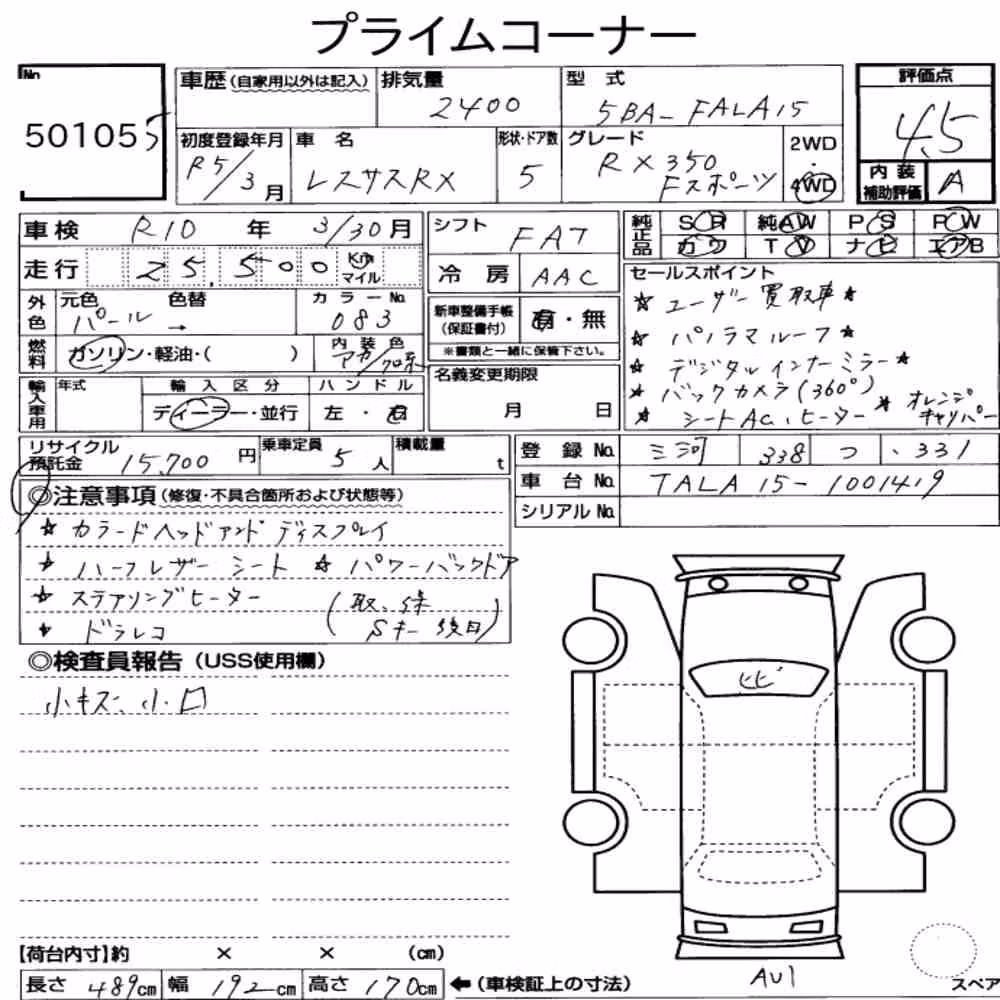 プライムコーナー
No
501055
車歴(自家用以外は記入)
排気量
2400
型 式
5BA-FALA15
評価点
4.5
初度登録年月
R5/3月
車 名
レクサスRX
形状・ドア数
5
グレード
RX350
Fスポーツ
2WD
・
4WD
内 装
補助評価
A
車検 R10 年 3/30月
走行 25,500 Km
マイル
シフト
FAT
冷 房 AAC
純正品
SR 純AW PS PW
カワ TV ナビ エアB
外色
元色 色替
パール →
カラーNo.
083
燃料
ガソリン・軽油・( )
内 装 色
アカ/クロ系
新車整備手帳
(保証書付)
有・無
※書類と一緒に保管下さい。
名義変更期限
月 日
輸入車用
年式
輸 入 区 分
ディーラー・並行
ハ ン ド ル
左・右
セールスポイント
☆ユーザー買取車☆
☆パノラマルーフ☆
☆デジタルインナーミラー☆
☆バックカメラ(360°)
☆シートAC、ヒーター ☆オレンジ
キャリパー
リサイクル
預託金 15,700 円
乗車定員
5人
積載量
t
登 録 No. 三河 338 つ ・331
車 台 No. TALA15-1001419
シリアル No.
◎注意事項(修復・不具合箇所および状態等)
☆カラードヘッドアップディスプレイ
☆ハーフレザーシート ☆パワーバックドア
☆ステアリングヒーター
☆ドラレコ
(取、保
Sキー後日)
◎検査員報告(USS使用欄)
小キズ、小凹
ヒビ
【荷台内寸】約 × × (cm)
長さ 489cm 幅 192cm 高さ 170cm ←(車検証上の寸法)
AU1
スペア